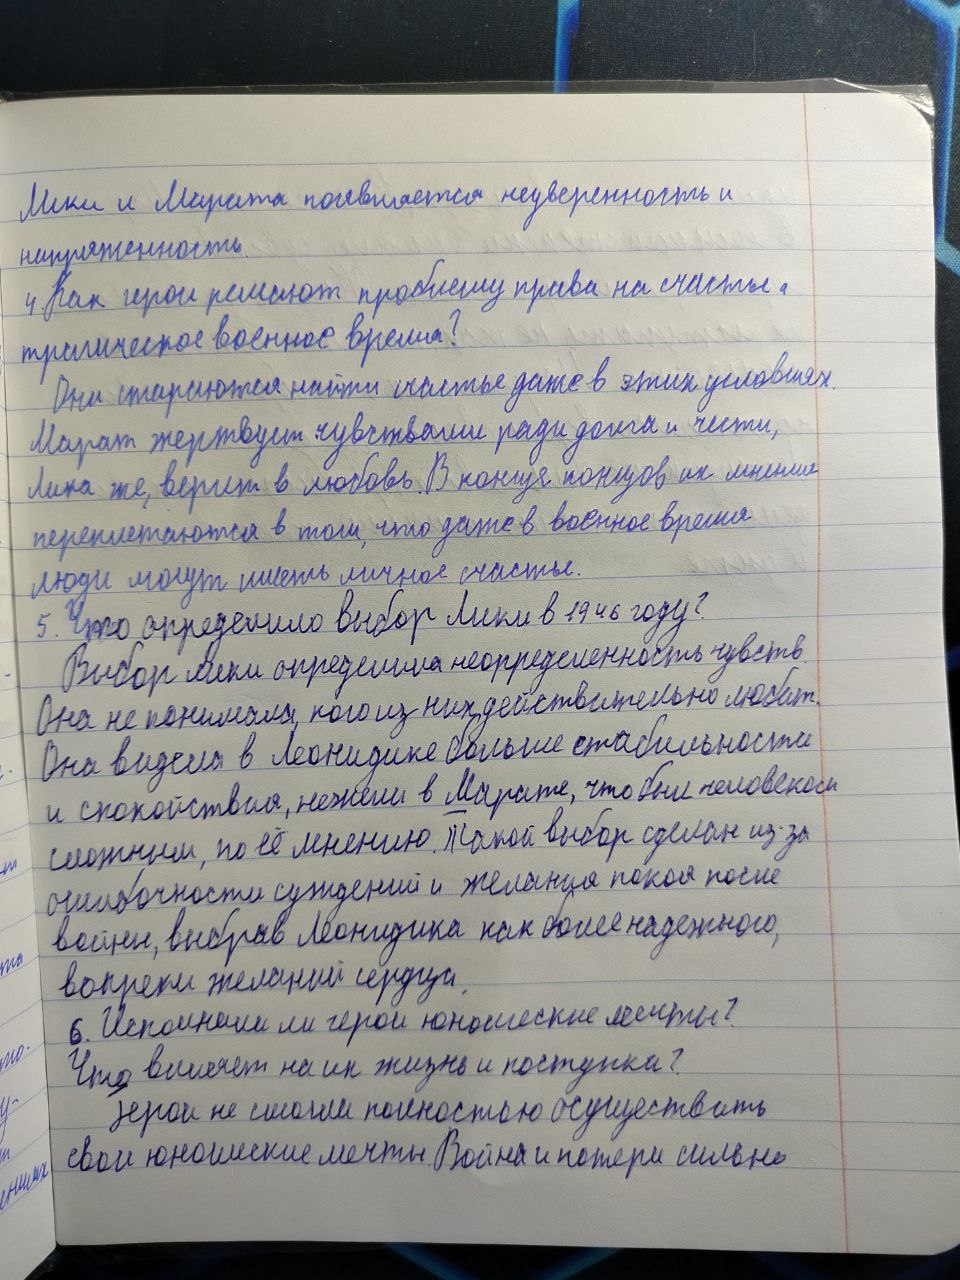 Лики и Марата появляется неуверенность и
напряженность.
4. Как герои решают проблему права на счастье в
трагическое военное время?
Они стараются найти счастье даже в этих условиях.
Марат жертвует чувствами ради долга и чести,
Лика же, верит в любовь. В конце концов, их мнения
переплетаются в том, что даже в военное время
люди могут иметь личное счастье.
5. Что определило выбор Лики в 1946 году?
Выбор Лики определила неопределенность чувств.
Она не понимала, кого из них действительно любит.
Она видела в Леонидике больше стабильности
и спокойствия, нежели в Марате, что был человеком
сложным, по её мнению. Такой выбор сделан из-за
ошибочности суждений и желания покоя после
войны, выбрав Леонидика как более надежного,
вопреки желаний сердца.
6. Исполнили ли герои юношеские мечты?
Что влияет на их жизнь и поступка?
Герои не смогли полностью осуществить
свои юношеские мечты. Война и потери сильно